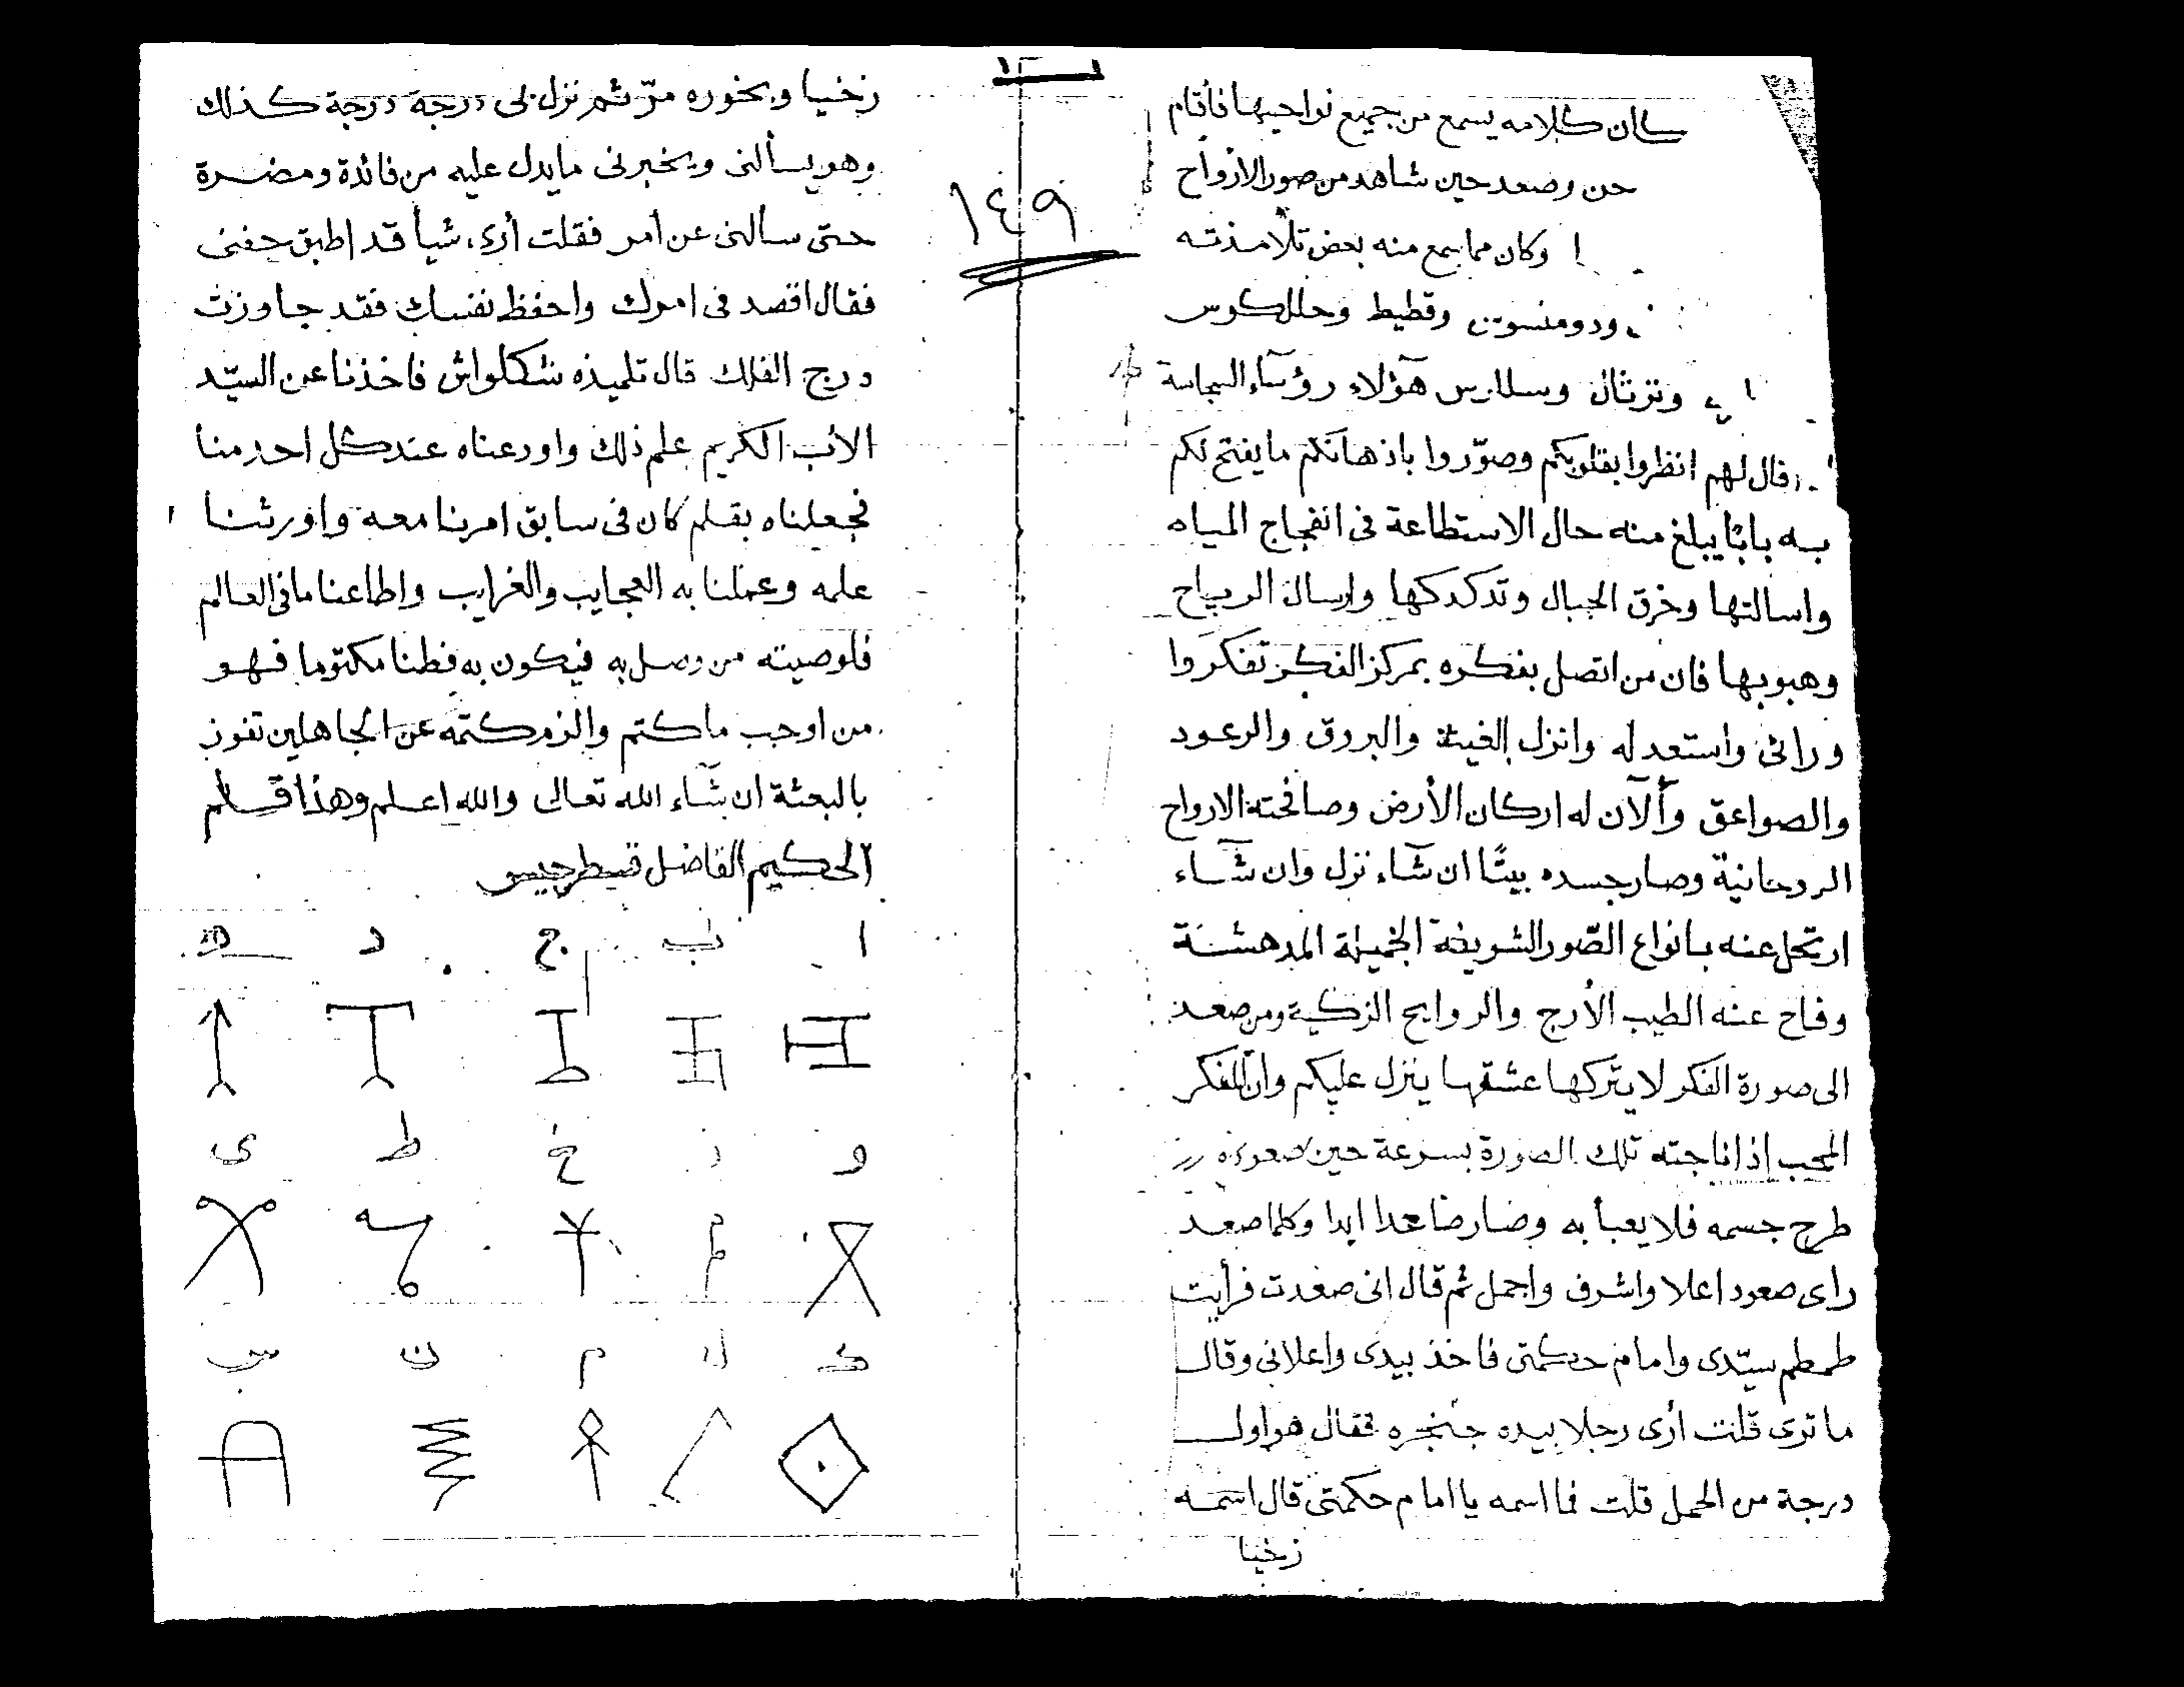 كان كلامه يسمع من جميع نواحيها فأقام
حن وصعد حين شاهد من صور الأرواح
وكان مما سمع منه بعض تلامذته
ودومنسوين وقطيط وحللكوس
ونرثال وسلارس هؤلاء رؤساء السجاسة
قال لهم انظروا بقلوبكم وصوّروا باذهانكم ما يفتح لكم
به بابًا يبلغ منه حال الاستطاعة في انفجاج المياه
واسالتها وخرق الجبال وتدكدكها وارسال الرياح
وهبوبها فان من اتصل بفكره بمركز الفكر تفكروا
وراني واستعد له وانزل الغيث والبروق والرعود
والصواعق وألآن له اركان الأرض وصافحته الارواح
الروحانية وصار جسده بيتًا ان شآء نزل وان شآء
ارتحل عنه بانواع الصّور الشريفة الجميلة المدهشة
وفاح عنه الطيب الأرج والروايح الزكية ومن صعد
الى صورة الفكر لا يتركها عشقها ينزل عليكم وان للفكر
المحب إذا ناجته تلك الصورة بسرعة حين صعوده
طرح جسمه فلا يعبأ به وصار صاعدا ابدا وكلما صعد
راى صعود اعلا واشرف واجمل ثم قال انى صعدت فرأيت
طمطم سيّدى وامام حكمتى فاخذ بيدى واعلانى وقال
ما ترى قلت أرى رجلا بيده خنجره فقال هو اول
درجة من الحمل قلت فما اسمه يا امام حكمتى قال اسمه
زخيا
١٤٩
زخيا وبخوره مرّ ثم نزل بى درجة درجة كذلك
وهو يسألنى ويخبرنى ما يدل عليه من فائدة ومضرة
حتى سألنى عن أمر فقلت أرى شيأ قد اطبق جفنى
فقال اقصد فى امرك واحفظ نفسك فقد جاوزت
درج الفلك قال تلميذه شكلواش فاخذنا عن السيّد
الأب الكريم علم ذلك واودعناه عند كل احد منا
فجعلناه بقلم كان فى سابق امرنا معه واورثنا
علمه وعملنا به العجايب والغرايب واطاعنا ما فى العالم
فلوصيته من وصل به فيكون به فطنا مكتوما فهو
من اوجب ما كتم والزم كتمه عن الجاهلين تفوز
بالبعثة ان شآء الله تعالى والله اعلم وهذا قلم
الحكيم الفاضل قسطرجيس
ا ب ج د ه
و ز ح ط ى
ك ل م ن س